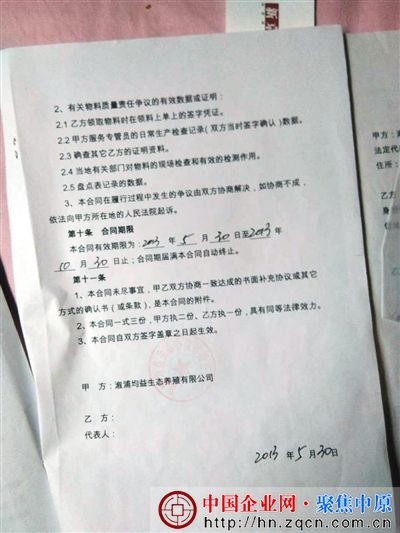 2、有关物料质量责任争议的有效数据或证明：
2.1 乙方领取物料时在领料上单上的签字凭证。
2.2 甲方服务专管员的日常生产检查记录（双方当时签字确认）数据。
2.3 确查其它乙方的证明资料。
2.4 当地有关部门对物料的现场检查和有效的检测作用。
2.5 盘点表记录的数据。
3、本合同在履行过程中发生的争议由双方协商解决，如协商不成，
依法向甲方所在地的人民法院起诉。
第十条 合同期限
本合同有效期限为：2013 年 5 月 30 日至 2013 年
10 月 30 日止；合同期届满本合同自动终止。
第十一条
1、本合同未尽事宜，甲乙双方协商一致达成的书面补充协议或其它
方式的确认书（或条款），是本合同的附件。
2、本合同一式三份，甲方执二份、乙方执一份，具有同等法律效力。
3、本合同自双方签字盖章之日起生效。
甲 方：溆浦均益生态养殖有限公司
乙 方：
代表人：
2013 年 5 月 30 日
甲方：
法定代
住所：
中国企业网·聚焦中原
http://hn.zqcn.com.cn